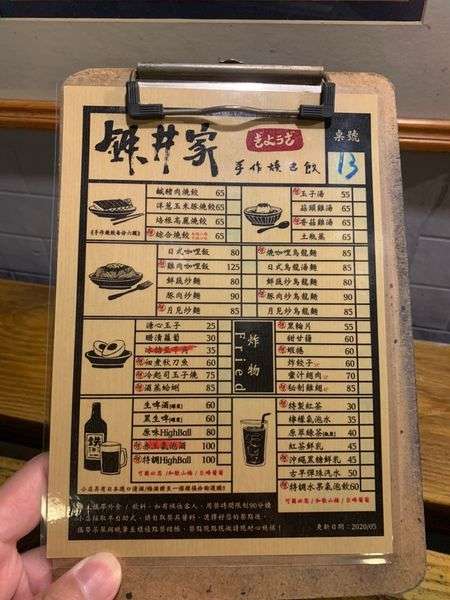 鉄井家
ぎょうざ
手作焼き餃
桌號
13
鹹豬肉燒餃 65
洋蔥玉米豚燒餃 65
培根高麗燒餃 65
綜合燒餃 65
《手作燒餃每份六顆》
玉子湯 55
蒜頭雞湯 65
香菇雞湯 65
土瓶蒸 65
日式咖哩飯 80
雞肉咖哩飯 125
鮮蔬炒麵 80
豚肉炒麵 90
月見炒麵 85
燒咖哩烏龍麵 80
日式烏龍湯麵 80
鮮蔬炒烏龍麵 80
豚肉炒烏龍麵 90
月見炒烏龍麵 85
溏心玉子 25
醋漬蘿蔔 30
35
甘煮秋刀魚 60
冷起司玉子燒 75
酒蒸蛤蜊 85
炸物
Fried
黑輪片 55
甜甘薯 60
蝦捲 60
炸餃子 55
蜜汁翅肉 70
秘制雞翅 85
生啤酒 80
黑生啤 80
原味HighBall 80
100
特調HighBall 100
特製紅茶 30
檸檬氣泡水 60
原萃綠茶 30
紅茶鮮乳 45
沖繩黑糖鮮乳 50
古早彈珠汽水 50
特調水果氣泡飲 60
更新日期：2020/05